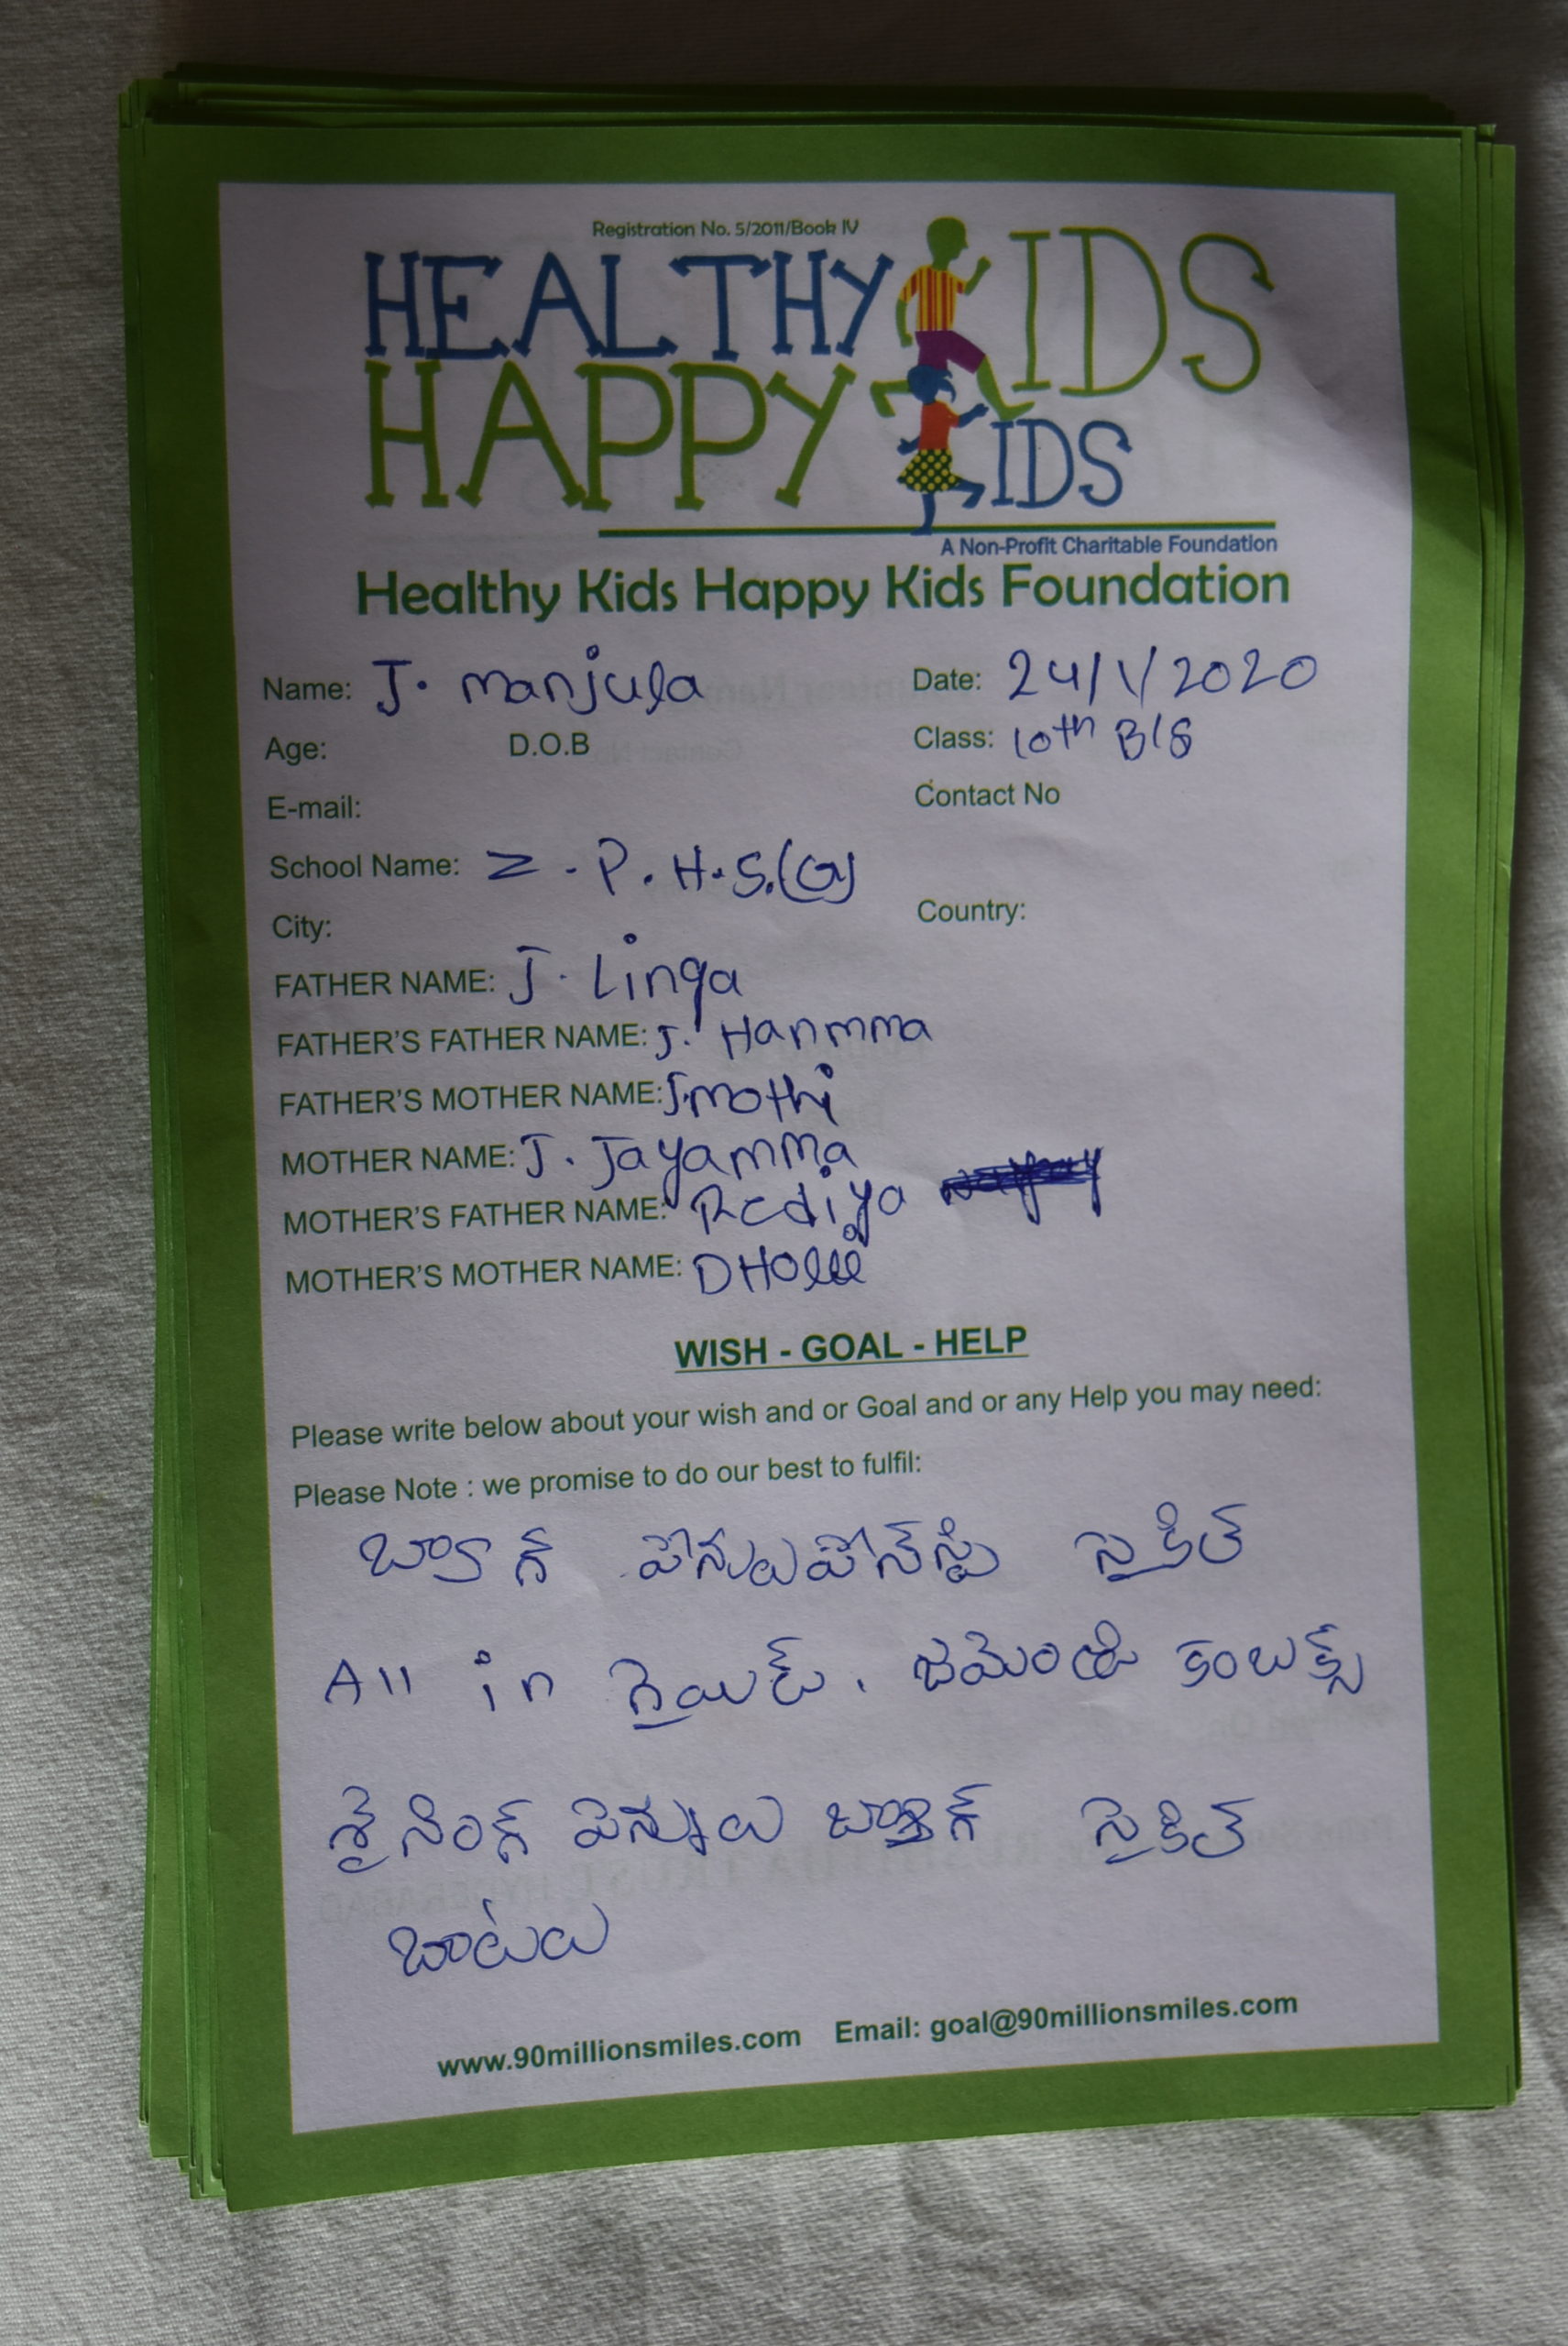 Registration No. 5/2011/Book IV
HEALTHY KIDS
HAPPY KIDS
A Non-Profit Charitable Foundation
Healthy Kids Happy Kids Foundation
Name: J. manjula Date: 24/1/2020
Age: D.O.B Class: 10th B/S
E-mail: Contact No
School Name: Z.P.H.S.(G)
City: Country:
FATHER NAME: J. Linga
FATHER'S FATHER NAME: J. Hanmma
FATHER'S MOTHER NAME: J.mothi
MOTHER NAME: J. Jayamma
MOTHER'S FATHER NAME: Rediya
MOTHER'S MOTHER NAME:
WISH - GOAL - HELP
Please write below about your wish and or Goal and or any Help you may need:
Please Note : we promise to do our best to fulfil:
బ్యాగ్ సైకిల్
All in గైయిడ్.
పెన్నులు బ్యాగ్ సైకిల్
బాటలు
www.90millionsmiles.com Email: goal@90millionsmiles.com